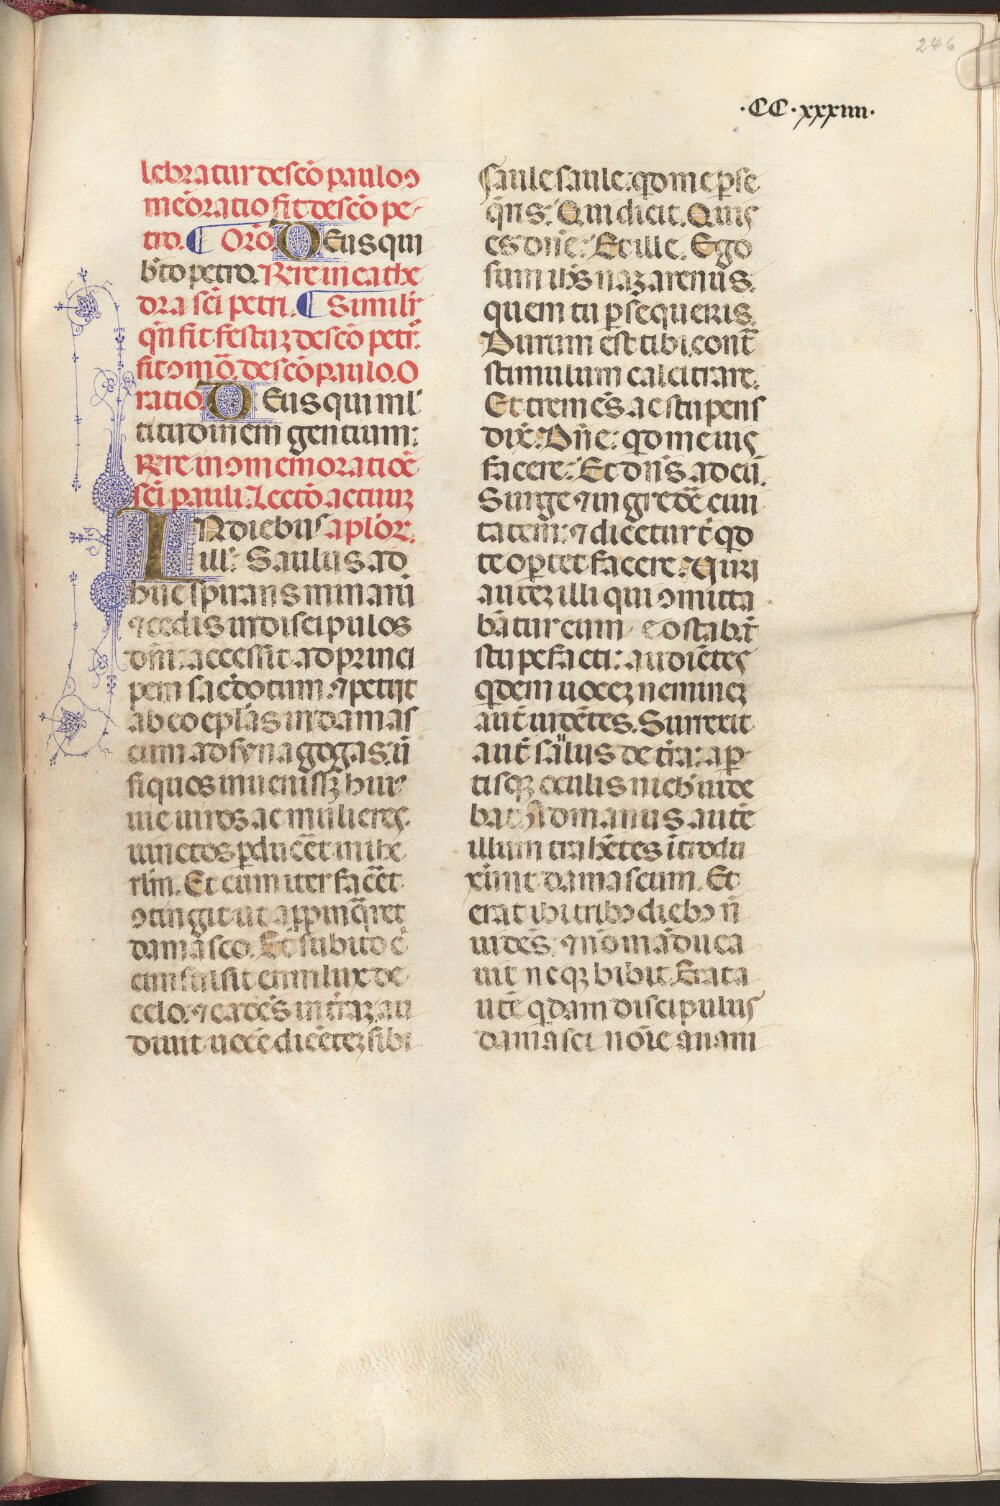 246
·CC·xxxiiii·
lebratur de sc̄o paulo ↄ
mēoratio fit de sc̄o pe-
tro. ¶ Orō. DEus qui
bt̄o petro. Rr̄e in cathe
dra sc̄i petri. ¶ Similr̄
qn̄ fit festuꝫ de sc̄o petr̄.
fit ↄmō. de sc̄o paulo. O
ratio. DEus qui ml̄
titudinem gentium:
Rr̄e in ↄmemoratiōē
sc̄i pauli. Lectō actuuꝫ
INdiebus apl̄oꝝ.
ill'. Saulus ad
huc spirans minaꝝ
⁊ cedis in discipulos
dn̄i: accessit ad princi
pem sac̄dotum. ⁊ petiit
ab eo epl̄as in damas
cum ad synagogas. ut̄
si quos inuenissꝫ huiꝰ
uie uiros ac mulieres.
uinctos ꝑducēt in ihe
rl̄m. Et cum iter facēt
ↄtingit ut appīnq̄ret
damasco. Et subito c̄
cumfulsit eum lux de
celo. ⁊ cadēs in tr̄aꝫ au
diuit uocē dicēteꝫ sibi
Saule saule: qd me ꝑse
q̄ris. Qui dicit. Quis
es dn̄e. Et ille. Ego
sum ih̄s nazarenus.
quem tu ꝑsequeris.
Durum est tibi cont̄
stimulum calcitrare.
Et tremēs ac stupens
dix̄. Dn̄e: qd me uis
facere. Et dn̄s ad eū.
Surge ⁊ ingredē ciui
tatem: ⁊ dicetur t̄ qd
te oꝑtet facere. Uiri
auteꝫ illi qui ↄmitta
bātur cum eo stabāt
stupefacti: audiētes
qdem uoceꝫ nemineꝫ
aut̄ uidētes. Surrexit
aut̄ saulus de tr̄a: aꝑ
tisqꝫ oculis nich' uide
bat. Ad manus autē
illum trahētes ītrodu
xerunt damascum. Et
erat ibi tribꝰ diebꝰ n̄
uidēs. ⁊ nō māduca
uit neqꝫ bibit. Erat a
utē qdam discipulus
damasci noīe anani